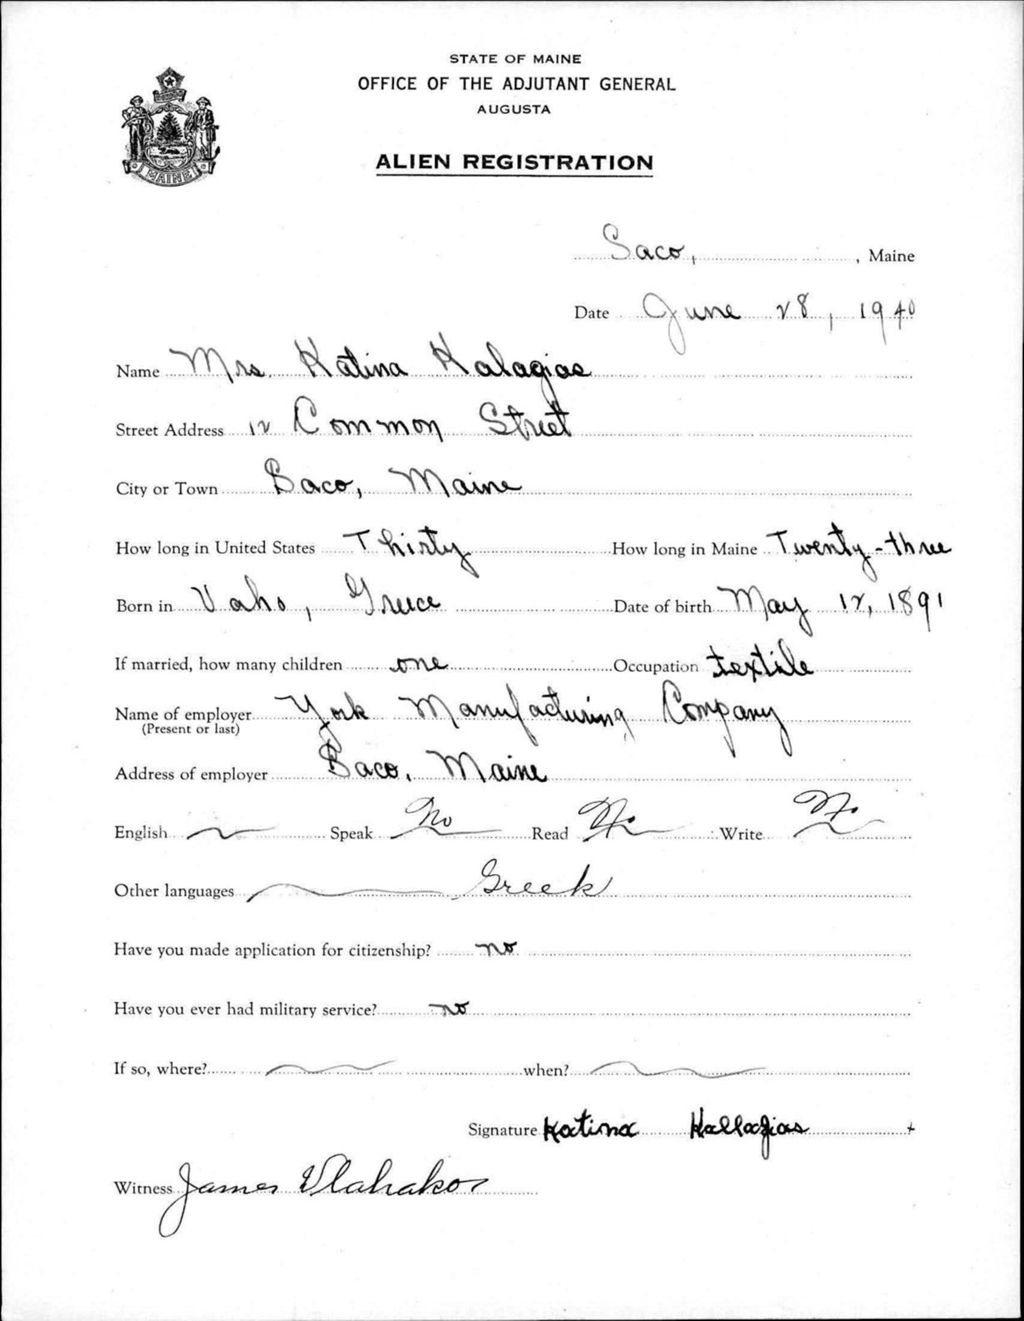 STATE OF MAINE
OFFICE OF THE ADJUTANT GENERAL
AUGUSTA
MAINE
ALIEN REGISTRATION
Saco, , Maine
Date June 28, 1940
Name Mrs. Katina Kalagias
Street Address 12 Common Street
City or Town Saco, Maine
How long in United States Thirty How long in Maine Twenty-three
Born in Vaho, Greece Date of birth May 12, 1891
If married, how many children one Occupation textile
Name of employer York Manufacturing Company
(Present or last)
Address of employer Saco, Maine
English Speak No Read No Write No
Other languages Greek
Have you made application for citizenship? no
Have you ever had military service? no
If so, where? when?
Signature Katina Kallagias
Witness James Vlahakos